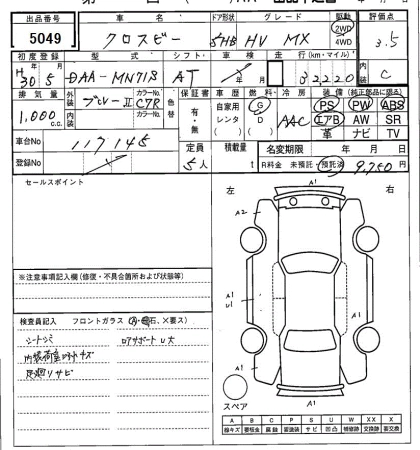 出品番号 車名 ドア形状 グレード 駆動 評価点
5049 クロスビー 5HB HV MX 2WD 4WD 3.5
初度登録 型式 シフト 車検 走行 (km・マイル) 内装
H 30年 5月 DAA-MN71S AT 年 月 32,220 C
排気量 外装 カラーNo. 色替 保証書 車歴 燃料 冷房 装備 (純正部品に限る)
1,000 c.c. ブルーⅡ C7R 有・無 自家用 レンタ G D AAC PS PW ABS
内装 カラーNo. エアB AW SR
革 ナビ TV
車台No 117145 定員 積載量 名変期限 年 月 日
登録No 5人 t R料金 未預託・預託済 9,750
セールスポイント
左 右
A1
A2
A1
U1
A1
A1
A1
スペア
※注意事項記入欄 (修復・不具合箇所および状態等)
検査員記入 フロントガラス
シートシミ ロアサポートU大
内装荷室内キズ
足廻りサビ
A B C P S U W X XX
線キズ 要板金 腐蝕 要塗装 サビ 凹凸 補修跡 交換跡 要交換